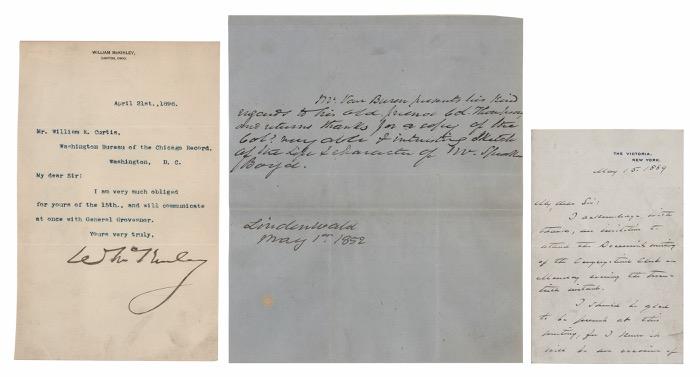 WILLIAM McKINLEY,
CANTON, OHIO.
April 21st., 1896.
Mr. William E. Curtis,
Washington Bureau of the Chicago Record,
Washington, D. C.
My dear Sir:
I am very much obliged
for yours of the 18th., and will communicate
at once with General Grosvenor.
Yours very truly,
Wm McKinley
Mr. Van Buren presents his kind
regards to his old friend Col. Thompson
and returns thanks for a copy of the
Col's very able & interesting Sketch
of the Life & character of Mr. Speaker
Boyd.
Lindenwald
May 1st 1852
THE VICTORIA,
NEW YORK.
May 15. 1889
My dear Sir:
I acknowledge with
thanks, an invitation to
attend the meeting
of the Congregational Club on
Monday evening the
instant.
I should be glad
to be present at this
meeting, for I know it
will be an occasion of